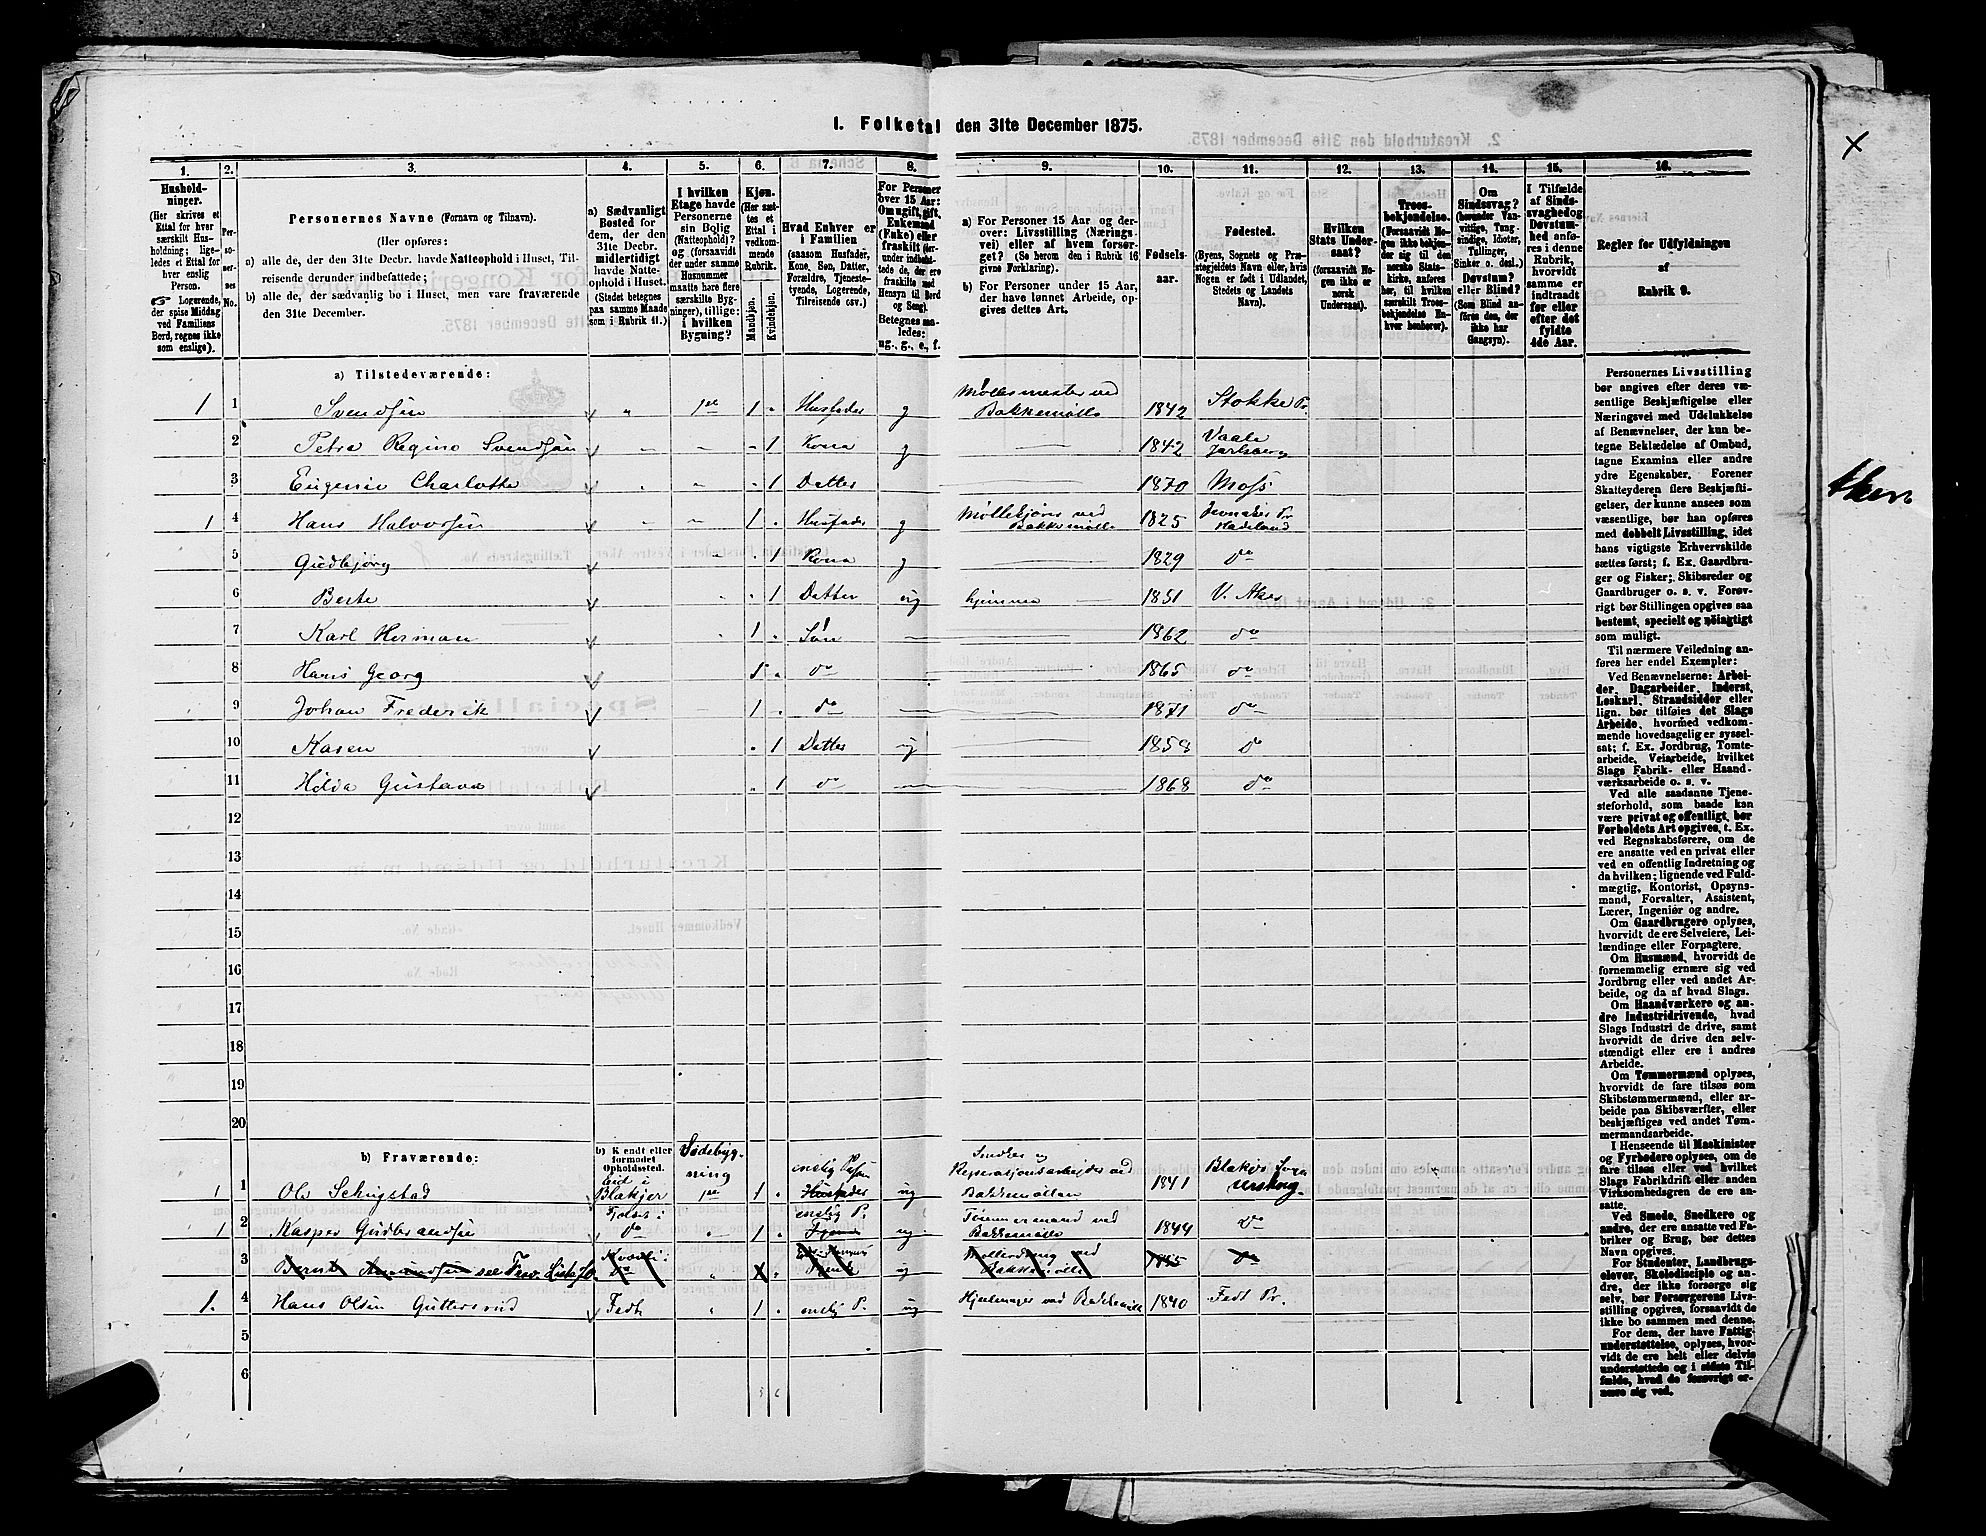 1. Folketal den 31te December 1875.
1.
Husholdninger.
(Her skrives et
Ettal for hver
særskilt Husholdning; ligeledes et Ettal for
hver enslig
Person.
Logerende,
der spise Middag
ved Familiens
Bord, regnes ikke
som enslige).
2.
Personernes No.
3.
Personernes Navne (Fornavn og Tilnavn).
(Her opføres:
a) alle de, der den 31te Decbr. havde Natteophold i Huset, Tilreisende derunder indbefattede;
b) alle de, der sædvanlig bo i Huset, men vare fraværende
den 31te December.
4.
a) Sædvanligt
Bosted for
dem, der den
31te Decbr.
midlertidigt
havde Natteophold i Huset.
(Stedet betegnes
paa samme Maade
som i Rubrik 11.)
5.
I hvilken
Etage havde
Personerne
sin Bolig
(Natteophold)?
og (forsaavidt
der under samme
Husnummer
maatte høre flere
særskilte Bygninger), tillige:
i hvilken
Bygning?
6.
Kjøn.
(Her sættes et
Ettal i
vedkommende
Rubrik.
Mandkjøn.
Kvindekjøn.
7.
Hvad Enhver er
i Familien
(saasom Husfader,
Kone, Søn, Datter,
Forældre, Tjenestetyende, Logerende
Tilreisende osv.)
8.
For Personer
over 15 Aar:
Om ugift, gift,
Enkemand
(Enke) eller
fraskilt
Betegnes saaledes:
ug., g., e., f.
9.
a) For Personer 15 Aar og derover: Livsstilling (Næringsvei) eller af hvem forsørget? (Se herom den i Rubrik 16
givne Forklaring).
b) For Personer under 15 Aar,
der have lønnet Arbeide, opgives dettes Art.
10.
Fødselsaar.
11.
Fødested.
(Byens, Sognets og Præstegjeldets Navn, eller, hvis
Nogen er født i Udlandet,
Stedets og Landets
Navn).
12.
Hvilken
Stats Undersaat?
(forsaavidt Nogen ikke er
norsk
Undersaat).
13.
Troesbekjendelse.
(Forsaavidt Nogen ikke bekjender sig til den
norske Statskirke, anføres
her, til hvilken
særskilt Troesbekjendelse Enhver henhører).
14.
Om
Sindssvag?
(herunder Vanvittige, Tungsindige, Idioter,
Tullinger,
Sinker o. desl.)
Døvstum?
eller Blind?
(Som Blind anføres den, der
ikke har
Gangsyn).
15.
I Tilfælde
af Sindssvaghed og
Døvstumhed anføres i denne
Rubrik,
hvorvidt
samme er
indtraadt
før eller
efter det
fyldte
4de Aar.
16.
Regler for Udfyldningen
af
Rubrik 9.
a) Tilstedeværende:
1 1 Svendsen 1ste 1 Husfader g Møllemester ved Bakkemølle 1842 Stokke Pr.
2 Petra Regine Svendsen 1 Kona g 1842 Vaale Jarlsberg
3 Eugenie Charlotte 1 Datter 1870 Moss
1 4 Hans Halvorsen 1 Husfader g Møllekjører ved Bakkemølle 1825 Jevnaker Pr Hadeland
5 Gudbjørg 1 Kona g 1829 do
6 Berte 1 Datter ug hjemme 1851 V. Aker
7 Karl Herman 1 Søn 1862 do
8 Hans Georg 1 do 1865 do
9 Johan Frederik 1 do 1871 do
10 Karen 1 Datter ug 1858 do
11 Hilda Gustava 1 do 1868 do
12
13
14
15
16
17
18
19
20
b) Fraværende:
b) Kendt eller
formodet
Opholdssted.
Sidebygning
1 1 Ole Schugstad Blakjer 1ste 1 enslig Person Husfader ug Snedker og Reperationsarbejder ved Bakkemøllen 1841 Blakjer
1 2 Kasper Gudbrandsen do 1 enslig P. ug Tømmermand ved Bakkemølle 1844 do
3 Bernt Amundsen ug Bakkemølle do
1. 4 Hans Olsen Guttersrud Fedt 1 enslig P. ug Hjulmager ved Bakkemølle 1840 Fedt Pr.
5
6
Personernes Livsstilling
bør angives efter deres væsentlige Beskjæftigelse eller
Næringsvei med Udelukkelse
af Benævnelser, der kun betegne Beklædelse af Ombud,
tagne Examina eller andre
ydre Egenskaber. Forener
Skatteyderen flere Beskjæftigelser, der kunne ansees som
væsentlige, bør han opføres
med dobbelt Livsstilling, idet
hans vigtigste Erhvervskilde
sættes først; f. Ex. Gaardbruger og Fisker; Skibsreder og
Gaardbruger o. s. v. Forøvrigt bør Stillingen opgives saa
bestemt, specielt og nøiagtigt
som muligt.
Til nærmere Veiledning anføres her endel Exempler:
Ved Benævnelserne: Arbeider, Dagarbeider, Inderst,
Løskarl, Strandsidder eller
lign. bør tilføies det Slags
Arbeide, hvormed vedkommende hovedsagelig er sysselsat; f. Ex. Jordbrug, Tomtearbeide, Veiarbeide, hvilket
Slags Fabrik- eller Haandværksarbeide o. s. v.
Ved alle saadanne Tjenesteforhold, som baade kan
være privat og offentligt, bør
Forholdets Art opgives, t. Ex.
ved Regnskabsførere, om de
ere ansatte ved en privat eller
ved en offentlig Indretning og
da hvilken; lignende ved Fuldmægtig, Kontorist, Opsynsmand, Forvalter, Assistent,
Lærer, Ingeniør og andre.
Om Gaardbrugere oplyses,
hvorvidt de ere Selveiere, Leilændinge eller Forpagtere.
Om Husmænd, hvorvidt de
fornemmelig ernære sig ved
Jordbrug eller ved andet Arbeide, og da af hvad Slags.
Om Haandværkere og andre Industridrivende, hvad
Slags Industri de drive, samt
hvorvidt de drive den selvstændigt eller ere i andres
Arbeide.
Om Tømmermænd oplyses,
hvorvidt de fare tilsøs som
Skibstømmermænd, eller arbeide paa Skibsværfter, eller
beskjæftiges ved andet Tømmermandsarbeide.
I Henseende til Maskinister
og Fyrbødere oplyses, om de
fare tilsøs eller ved hvilket
Slags Fabrikdrift eller anden
Virksomhed de ere ansatte.
Ved Smede, Snedkere og
andre, der ere ansatte ved Fabriker og Brug, bør dettes
Navn opgives.
For Studenter, Landbrugselever, Skoledisciple og andre, der ikke forsørge sig
selv, bør Forsørgerens Livsstilling opgives, forsaavidt de
ikke bo sammen med denne.
For dem, der have Fattigunderstøttelse, oplyses, hvorvidt de ere helt eller delvis
understøttede og i sidste Tilfælde, hvad de forøvrigt ernære sig ved.